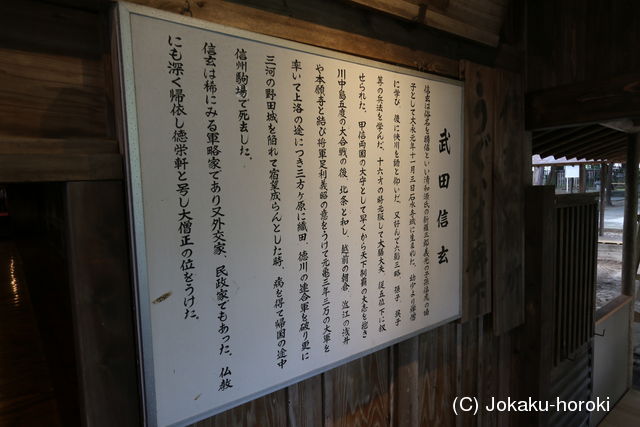 武田信玄
信玄は俗名を晴信といい清和源氏の新羅三郎義光の子孫信虎の嫡
子として大永元年十一月三日石水寺城に生まれた。幼少より禅僧
に学び 後に快川を師と仰いだ。又好んで六韜三略 孫子、呉子
等の兵法を学んだ。十六才の時元服して大膳大夫、従五位下に叙
せられた。甲信両国の大守として早くから天下制覇の大志を抱き
川中島五度の大合戦の後、北条と和し、越前の朝倉、近江の浅井
や本願寺と結び将軍足利義昭の意をうけて元亀三年三万の大軍を
率いて上洛の途につき三方ヶ原に織田、徳川の連合軍を破り更に
三河の野田城を陥れて宿望成らんとした時、病を得て帰国の途中
信州駒場で死去した。
信玄は稀にみる軍略家であり又外交家、民政家でもあった。仏教
にも深く帰依し徳栄軒と号し大僧正の位をうけた。
(C) Jokaku-horoki